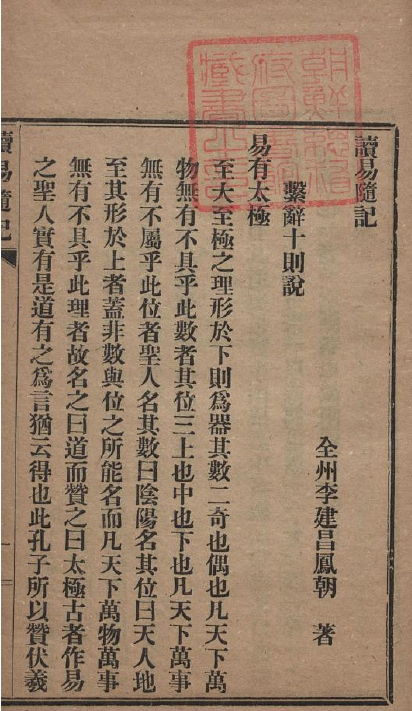 讀易隨記
全州李建昌鳳朝　著
繫辭十則說
易有太極
至大至極之理形於下則爲器其數二奇也偶也凡天下萬
物無有不具乎此數者其位三上也中也下也凡天下萬事
無有不屬乎此位者聖人名其數曰陰陽名其位曰天人地
至其形於上者蓋非數與位之所能名而凡天下萬物萬事
無有不具乎此理者故名之曰道而贊之曰太極古者作易
之聖人實有是道有之爲言猶云得也此孔子所以贊伏羲
讀易隨記